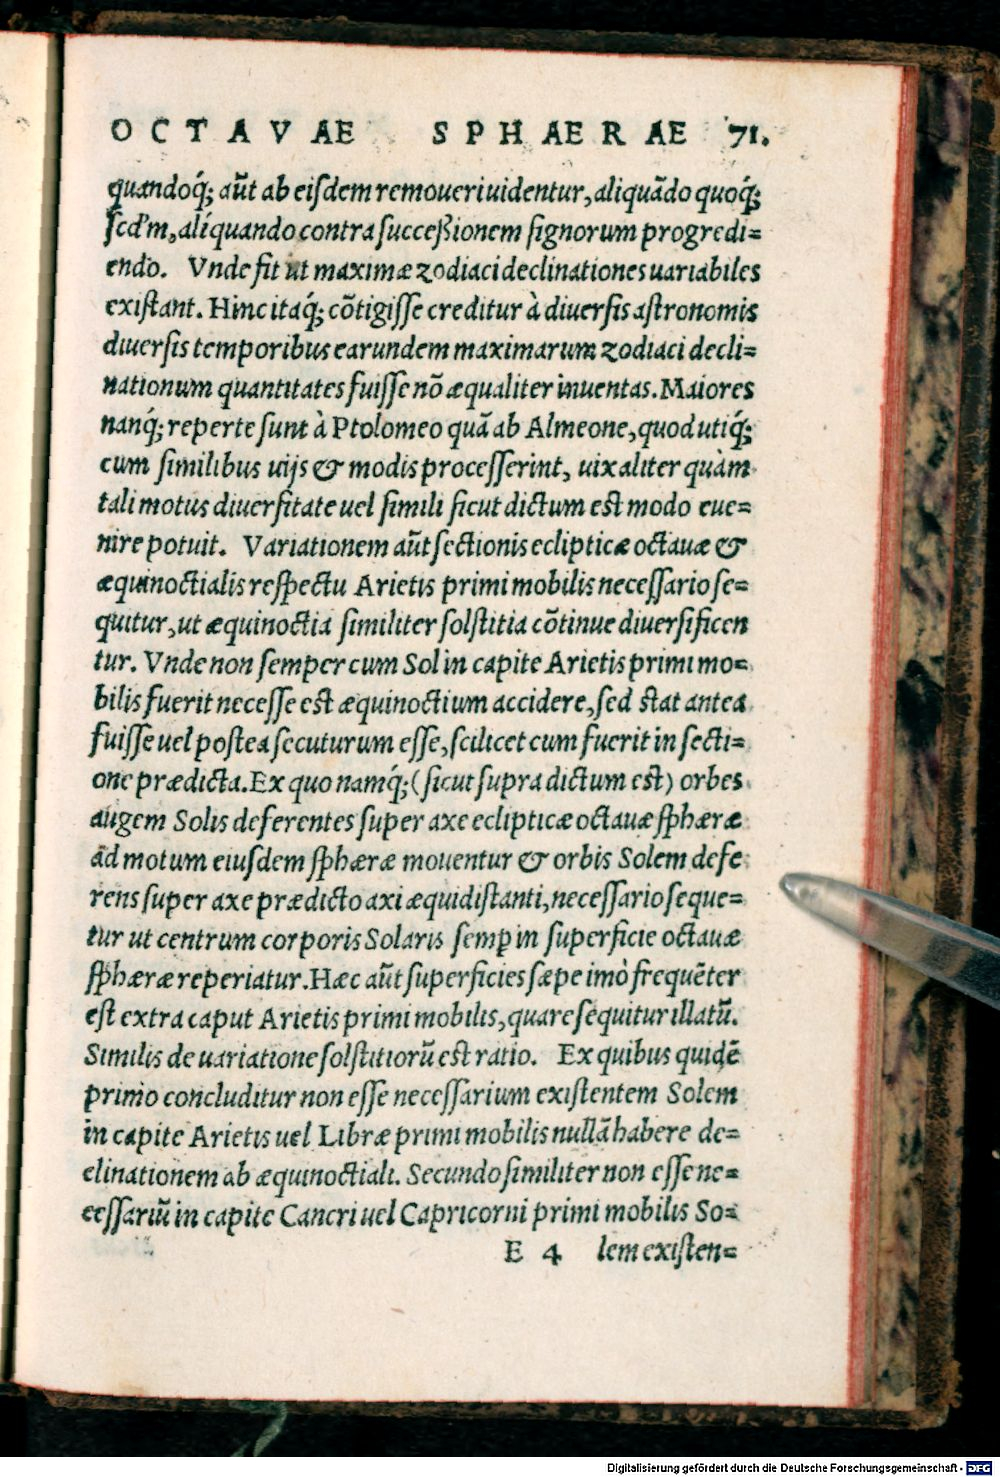 OCTAVAE SPHAERAE 71.
quandoq́; aūt ab eiſdem remoueri uidentur, aliquādo quoq́;
ſcd'm, aliquando contra ſucceßionem ſignorum progredi=
endo. Vnde fit ut maximæ zodiaci declinationes uariabiles
exiſtant. Hinc itaq́; cōtigiſſe creditur à diuerſis aſtronomis
diuerſis temporibus earundem maximarum zodiaci decli=
nationum quantitates fuiſſe nō æqualiter inuentas. Maiores
nanq́; reperte ſunt à Ptolomeo quā ab Almeone, quod utiq́;
cum ſimilibus uijs & modis proceſſerint, uix aliter quàm
tali motus diuerſitate uel ſimili ſicut dictum est modo eue=
nire potuit. Variationem aūt ſectionis eclipticæ octauæ &
æquinoctialis reſpectu Arietis primi mobilis neceſſario ſe=
quitur, ut æquinoctia ſimiliter ſolſtitia cōtinue diuerſificen
tur. Vnde non ſemper cum Sol in capite Arietis primi mo=
bilis fuerit neceſſe est æquinoctium accidere, ſed stat antea
fuiſſe uel poſtea ſecuturum eſſe, ſcilicet cum fuerit in ſecti=
one prædicta. Ex quo namq́; (ſicut ſupra dictum est) orbes
augem Solis deferentes ſuper axe eclipticæ octauæ ſphæræ
ad motum eiuſdem ſphæræ mouentur & orbis Solem defe
rens ſuper axe prædicto axi æquidiſtanti, neceſſario ſeque=
tur ut centrum corporis Solaris ſemp in ſuperficie octauæ
ſphæræ reperiatur. Hæc aūt ſuperficies ſæpe imò frequēter
eſt extra caput Arietis primi mobilis, quare ſequitur illatū.
Similis de uariatione ſolſtitiorū est ratio. Ex quibus quidē
primo concluditur non eſſe neceſſarium exiſtentem Solem
in capite Arietis uel Libræ primi mobilis nullā habere de=
clinationem ab æquinoctiali. Secundo ſimiliter non eſſe ne=
ceſſariū in capite Cancri uel Capricorni primi mobilis So=
E 4 lem exiſten=
Digitalisierung gefördert durch die Deutsche Forschungsgemeinschaft - DFG